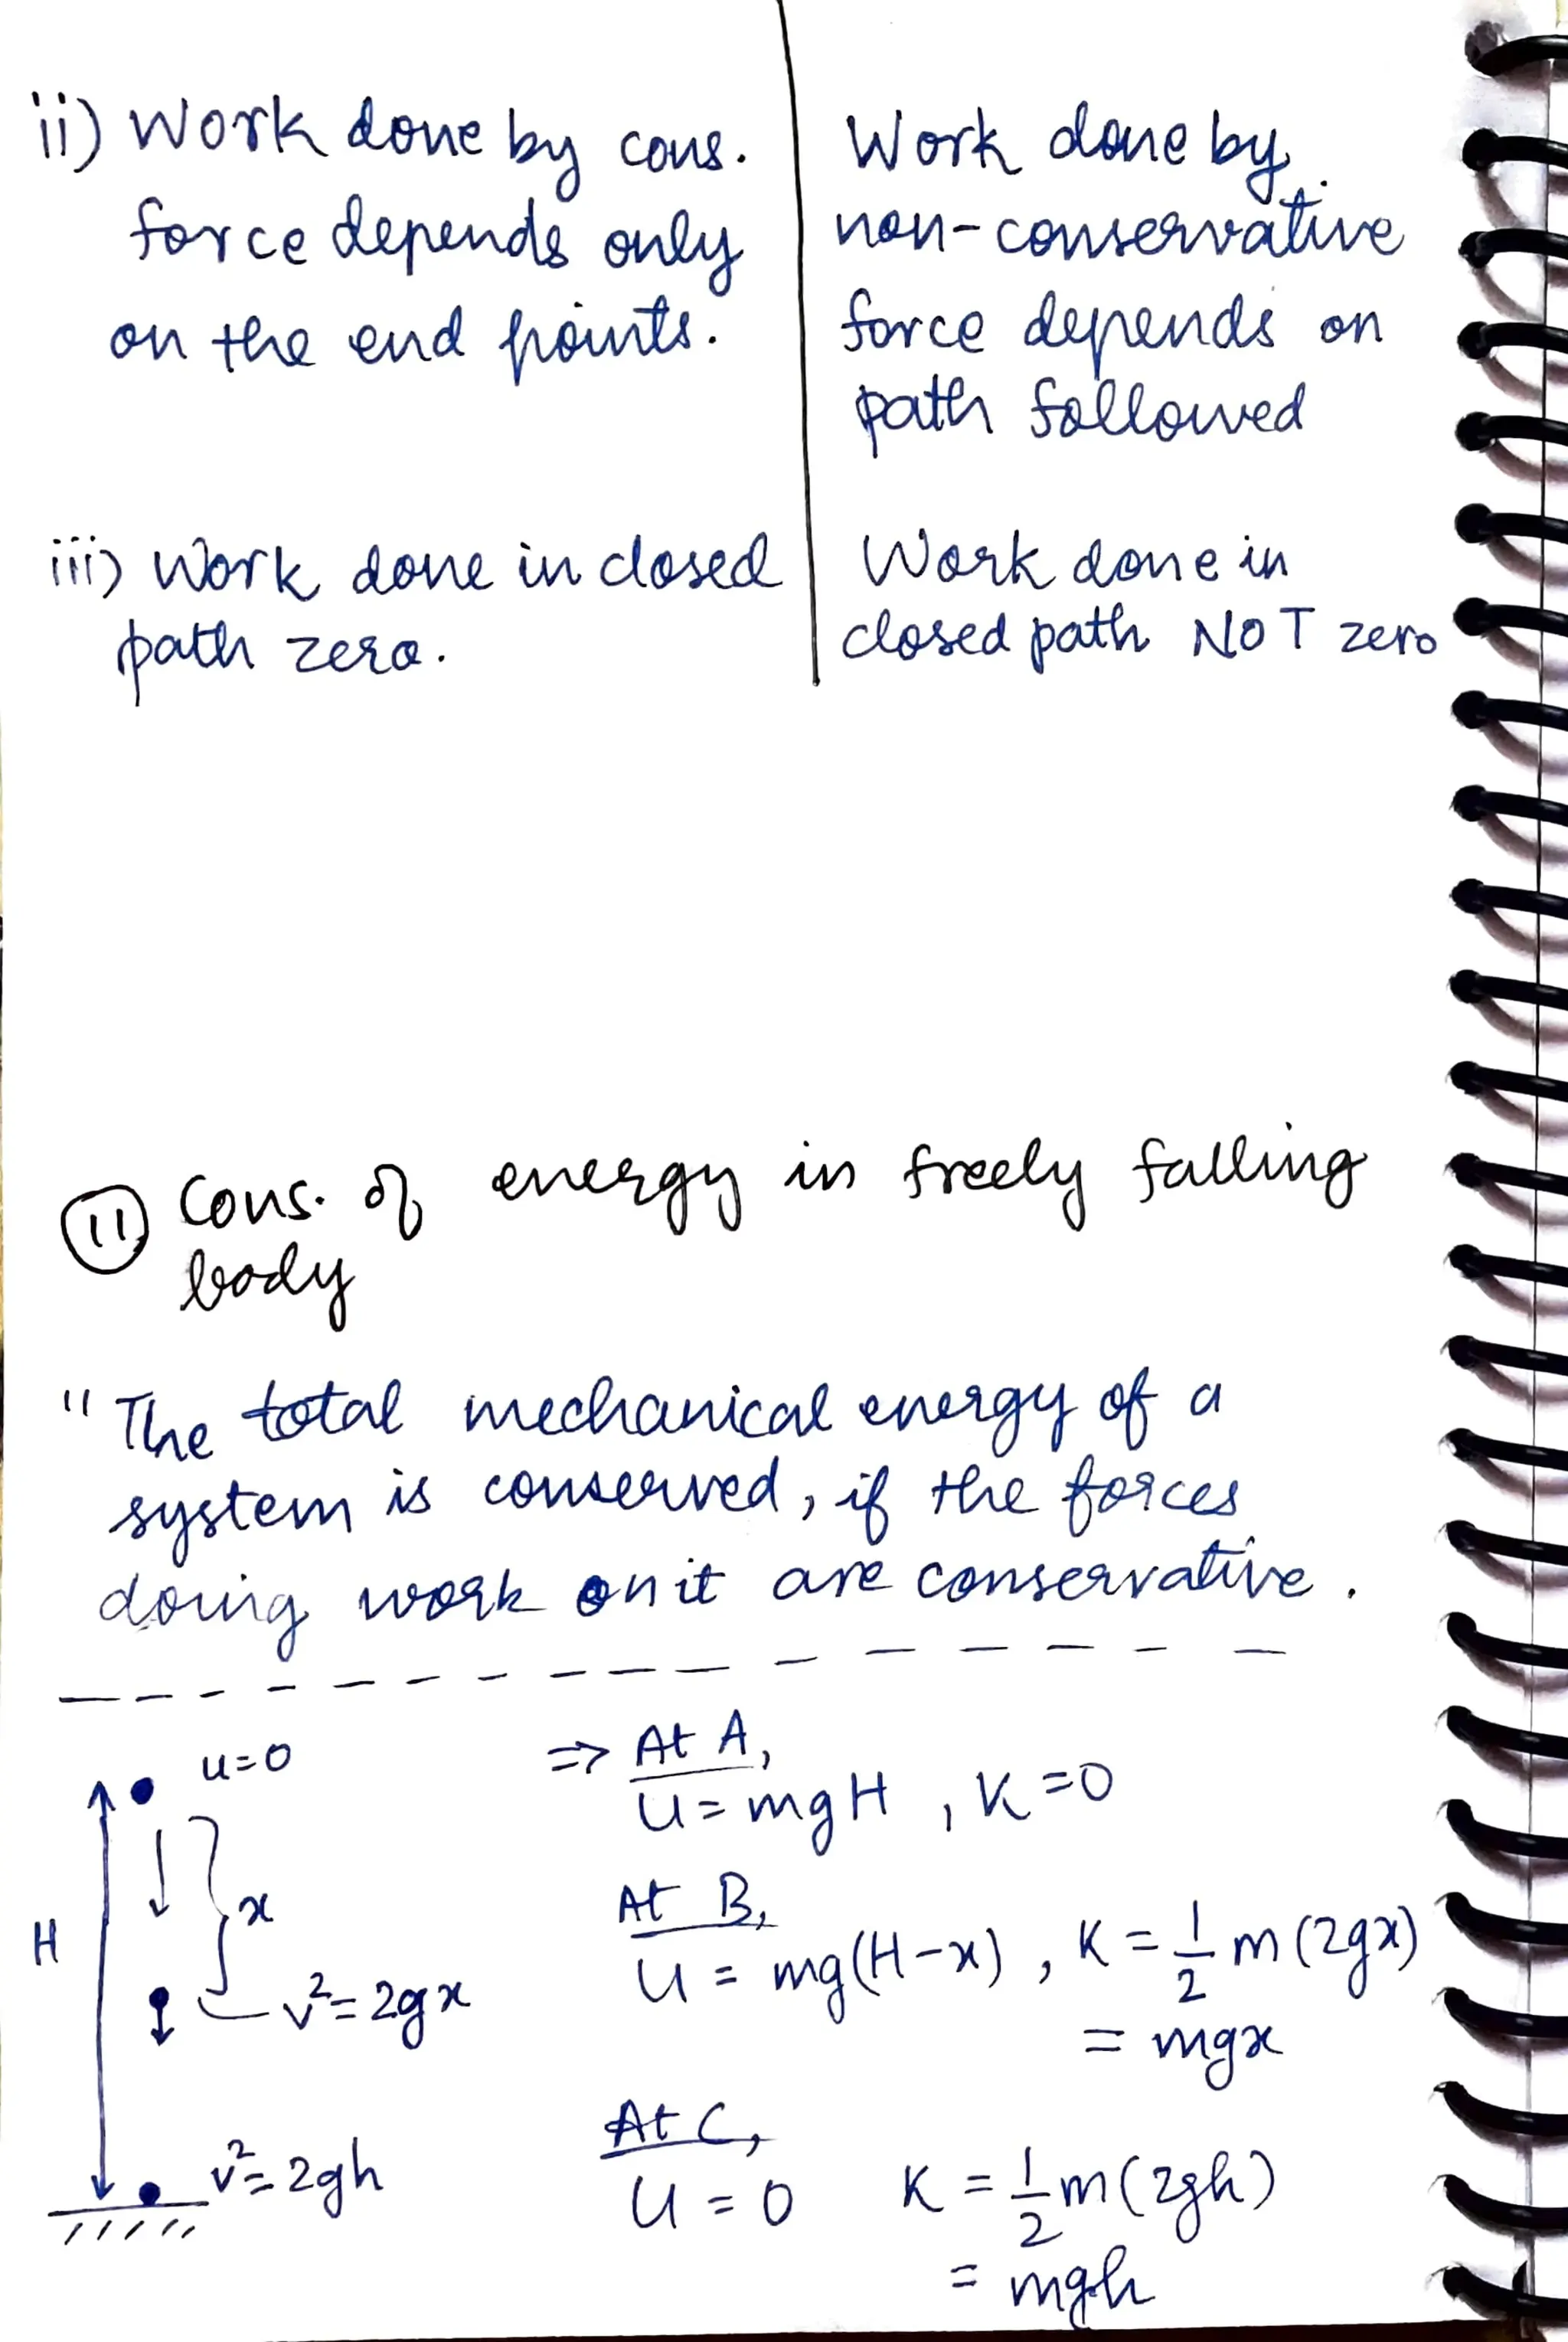 ii) Work done by cons.
force depends only
on the end points.
Work done by
non-conservative
force depends on
path followed
iii) Work done in closed
path zero.
Work done in
closed path NOT zero
11 Cons. of energy in freely falling
body
"The total mechanical energy of a
system is conserved, if the forces
doing work on it are conservative.
u=0
x
H
v²=2gx
v²=2gh
⇒ At A,
U=mgH , K=0
At B,
U = mg(H-x) , K = 1/2 m(2gx)
= mgx
At C,
U = 0 K = 1/2 m(2gh)
= mgh